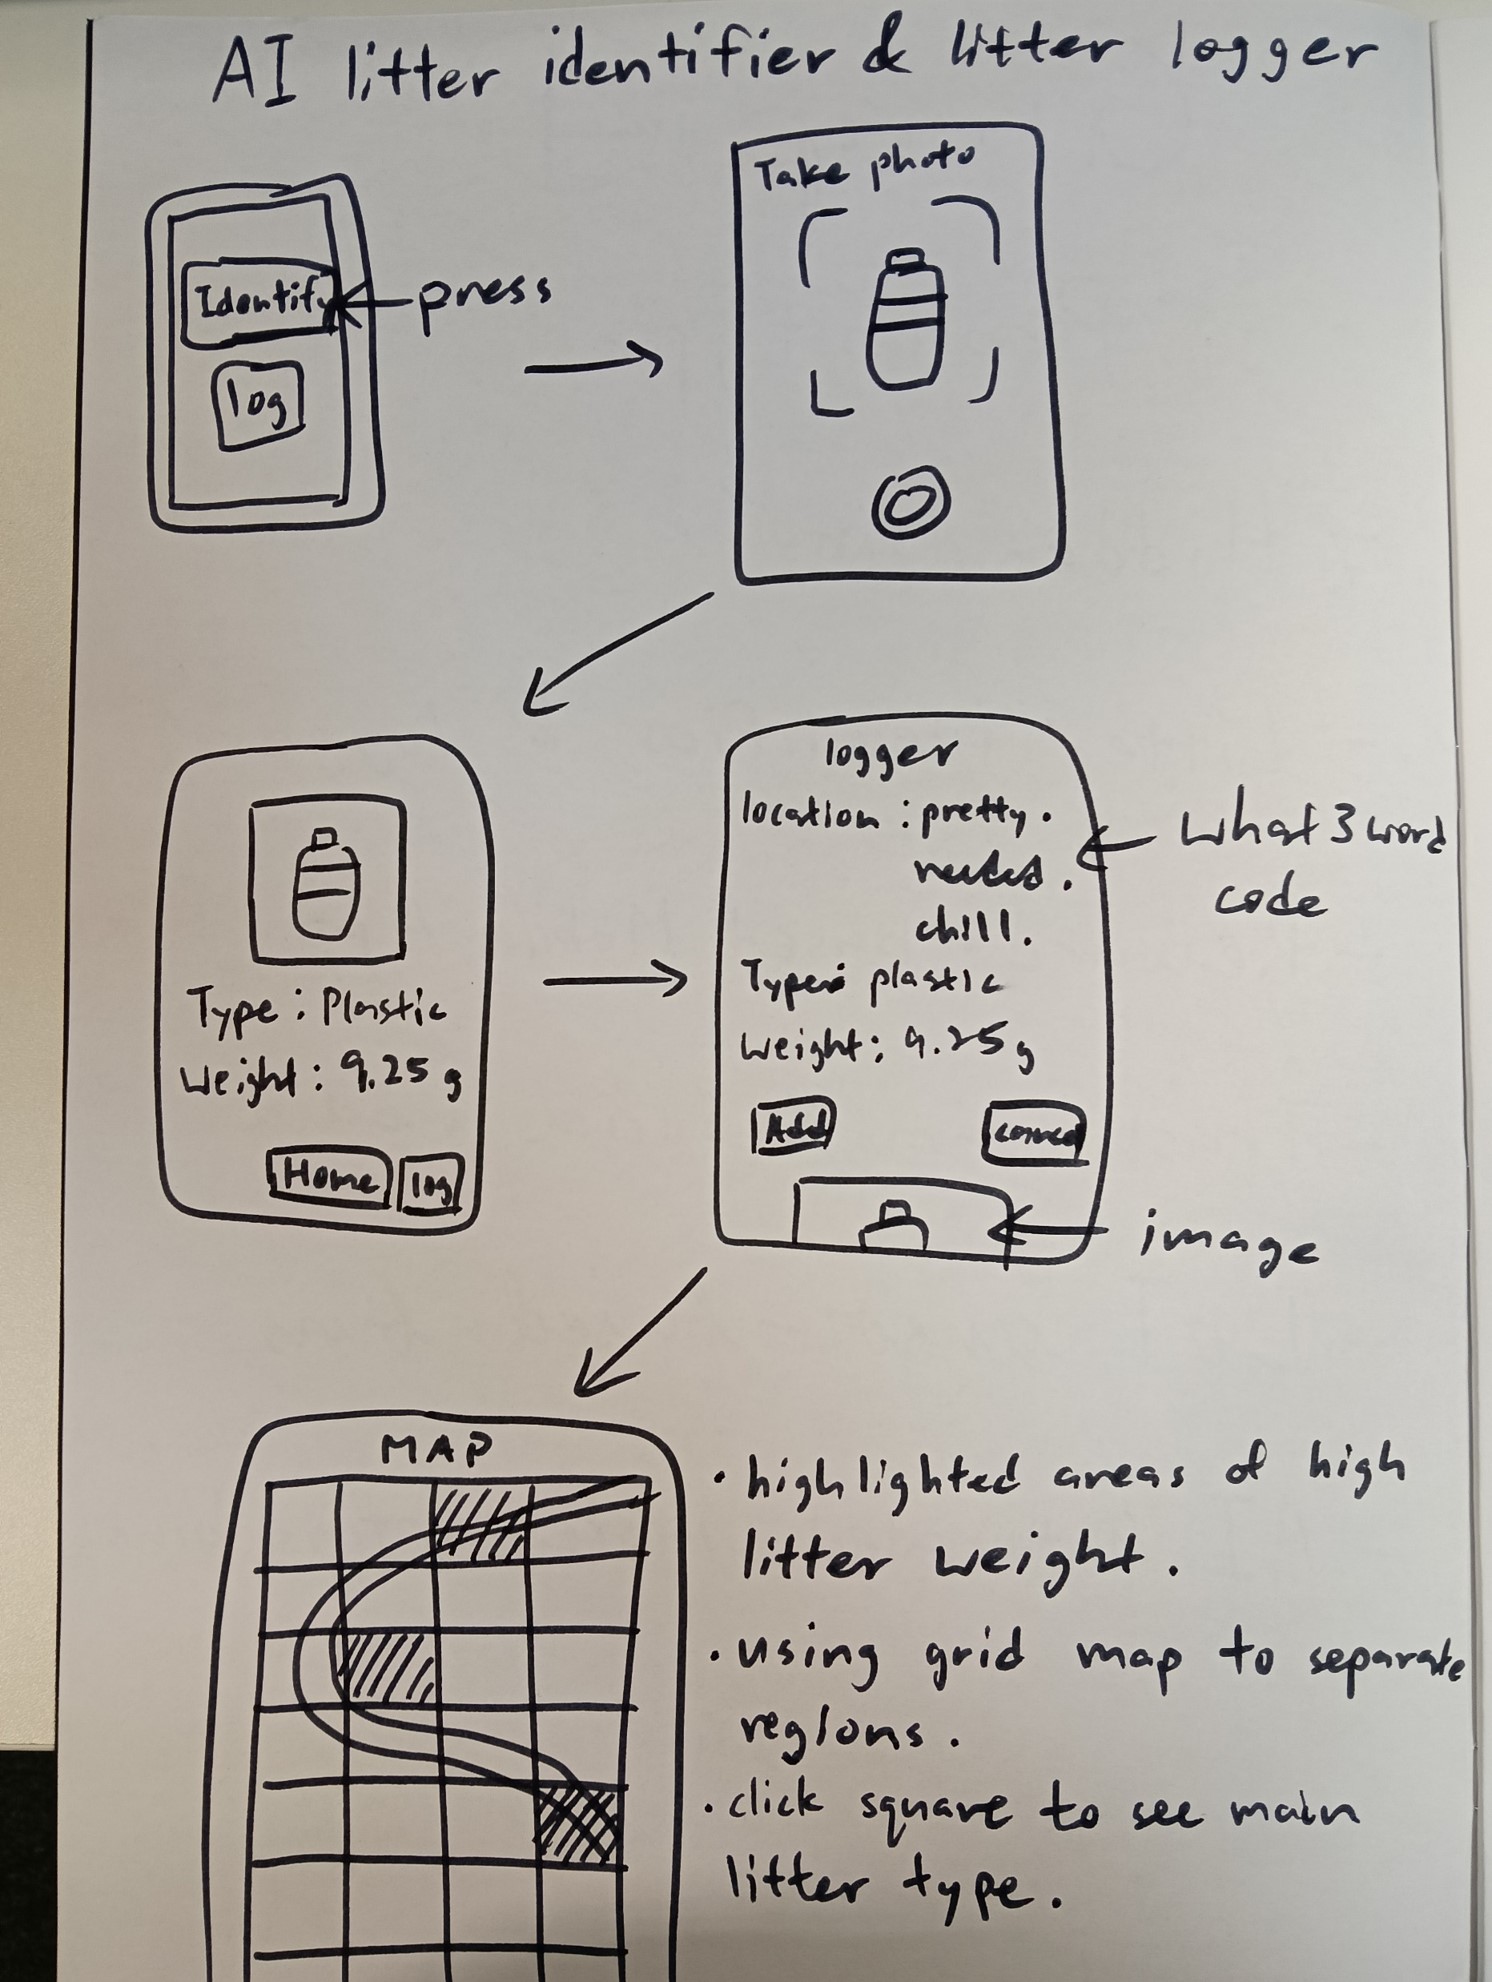 AI litter identifier & litter logger
Identify
press
log
Take photo
Type : Plastic
Weight : 9.25 g
Home
log
logger
location : pretty.
needed.
chill.
Type: plastic
Weight: 9.25 g
Add
What 3 word
code
image
MAP
· highlighted areas of high
litter weight.
· using grid map to separate
regions.
· click square to see main
litter type.